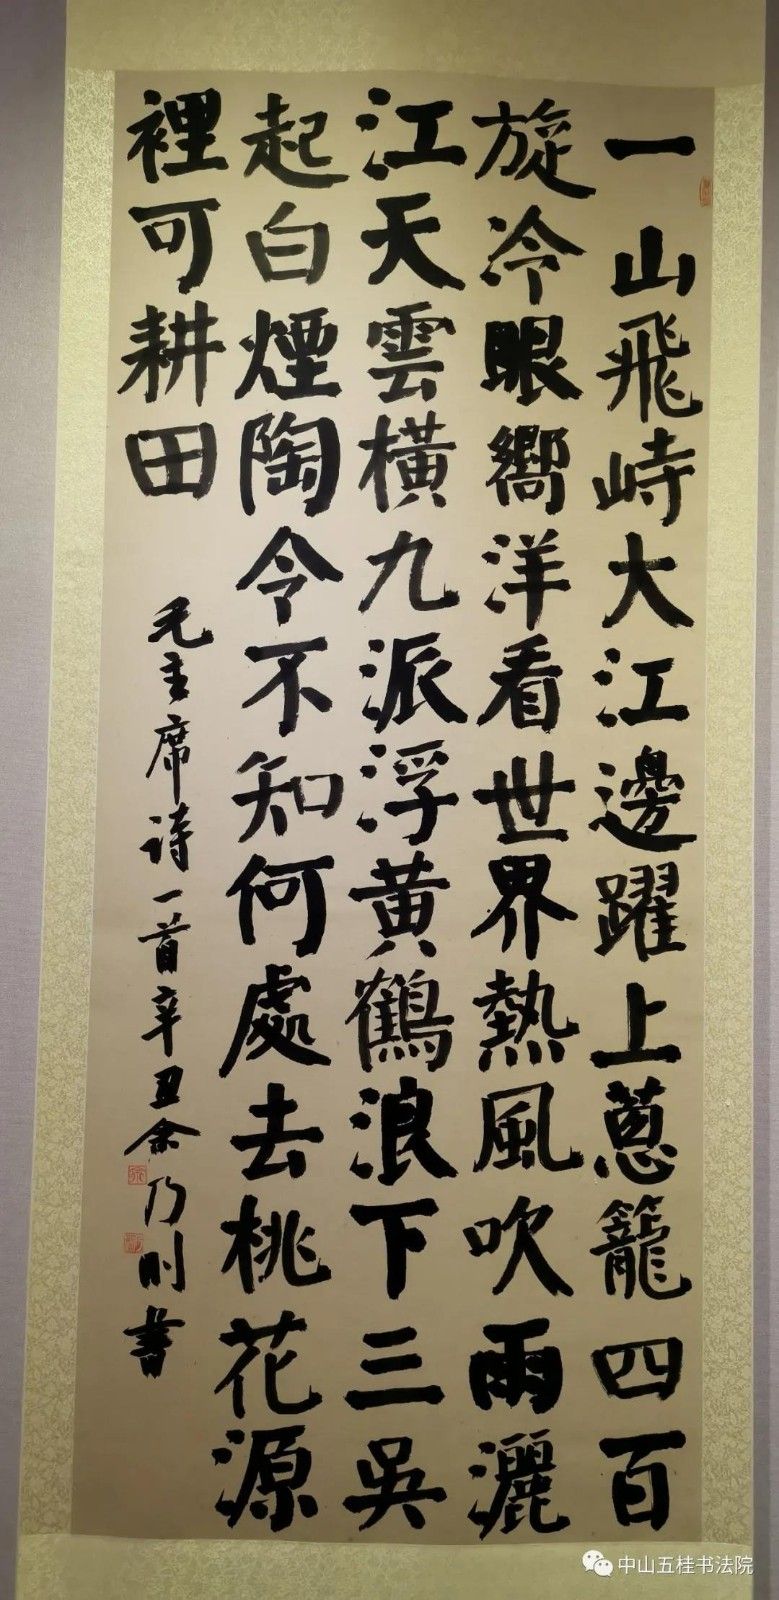 一山飛峙大江邊躍上蔥籠四百
旋冷眼嚮洋看世界熱風吹雨灑
江天雲橫九派浮黄鶴浪下三吳
起白煙陶令不知何處去桃花源
裡可耕田
毛主席诗一首辛丑余乃刚書
中山五桂书法院